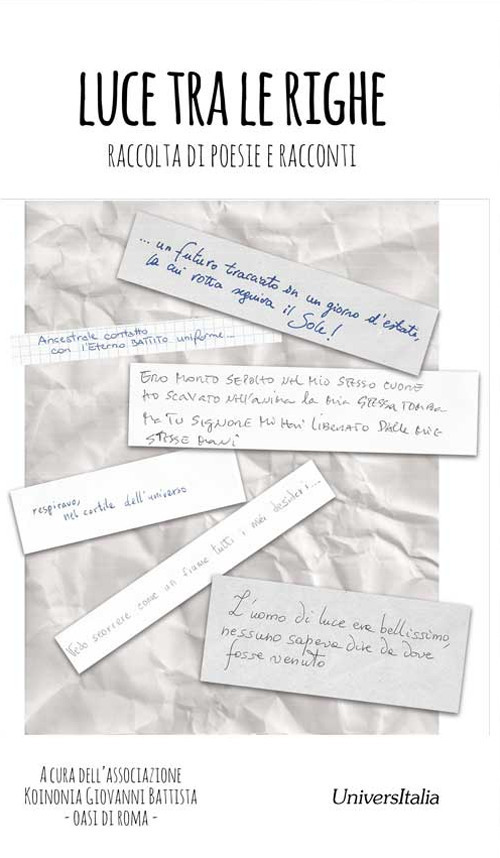 LUCE TRA LE RIGHE
RACCOLTA DI POESIE E RACCONTI
... un futuro tracciato in un giorno d'estate,
la cui rotta seguiva il Sole!
Ancestrale contatto
con l'Eterno BATTITO uniforme...
ERO MORTO SEPOLTO NEL MIO STESSO CUORE
HO SCAVATO NELL'ANIMA la mia STESSA TOMBA
MA TU SIGNORE MI HAI LIBERATO DALLE MIE
STESSE MANI
respiravo,
nel cortile dell'universo
Vedo scorrere come un fiume tutti i miei desideri....
L'uomo di luce era bellissimo,
nessuno sapeva dire da dove
fosse venuto
A CURA DELL'ASSOCIAZIONE
KOINONIA GIOVANNI BATTISTA
- OASI DI ROMA -
UniversItalia